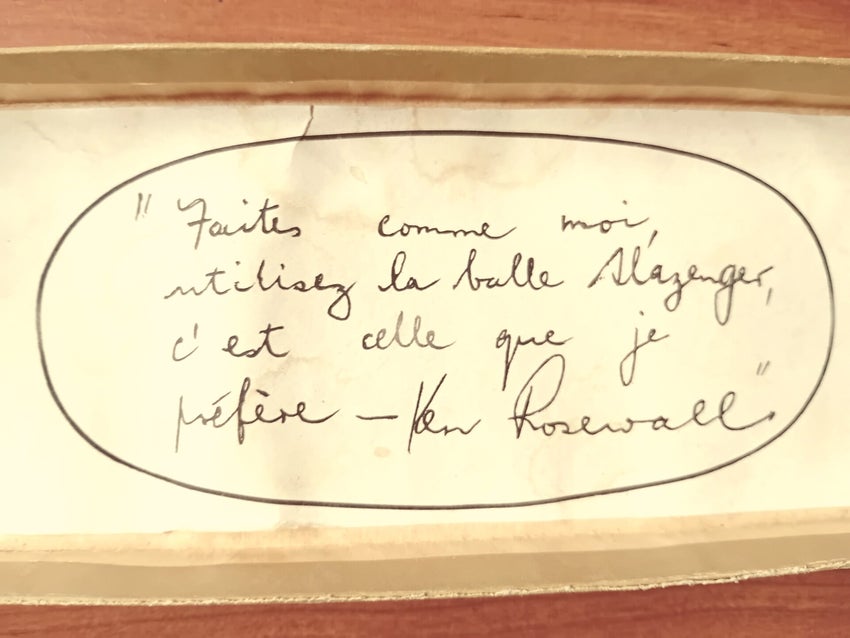 " Faites comme moi,
utilisez la balle Slazenger,
c'est celle que je
préfère — Ken Rosewall."